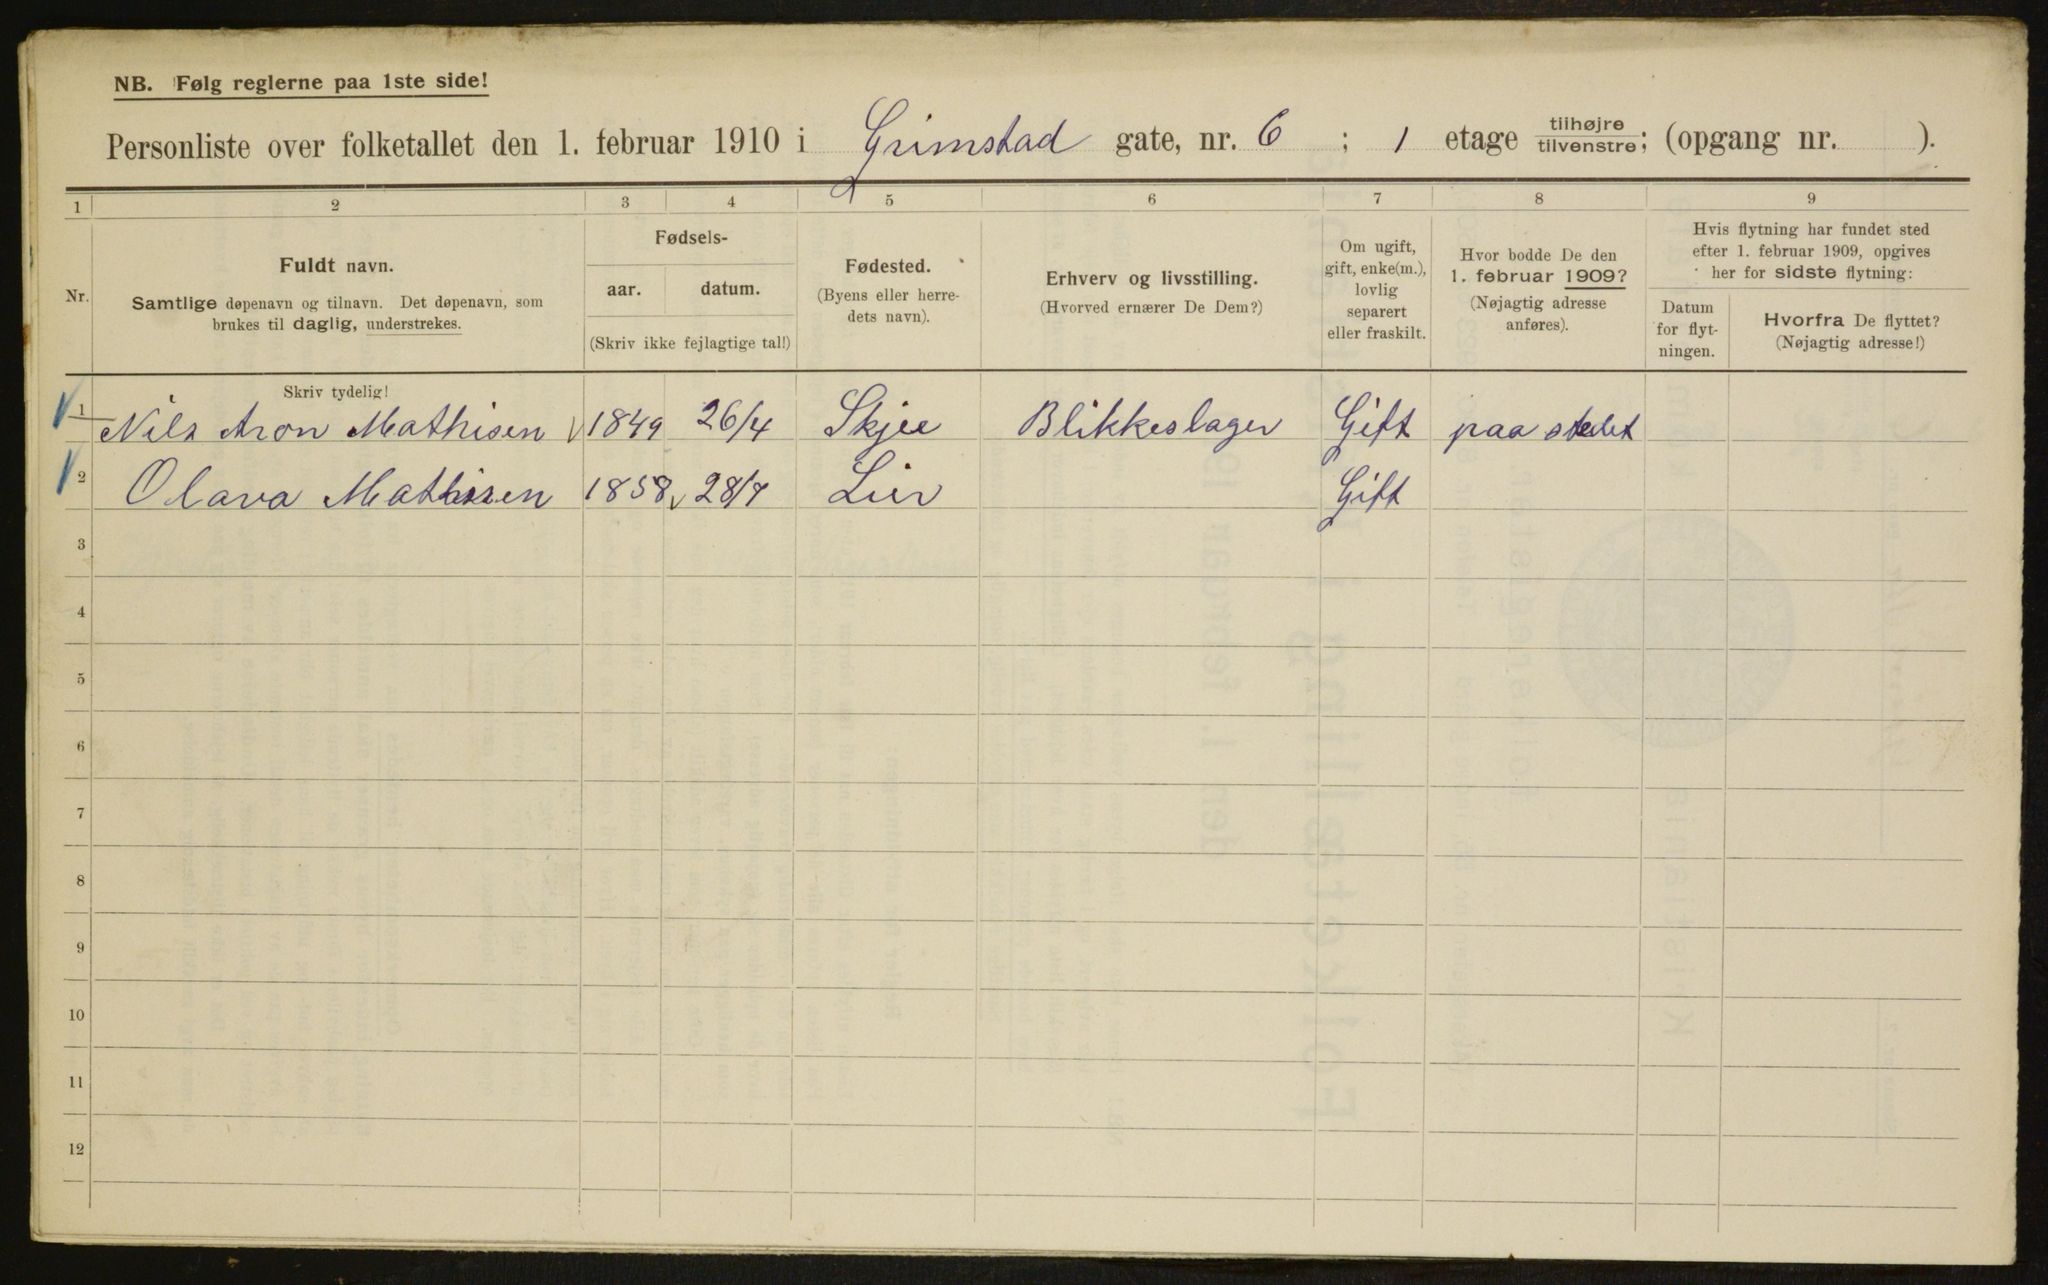 NB. Følg reglerne paa 1ste side!
Personliste over folketallet den 1. februar 1910 i Grimstad gate, nr. 6 ; 1 etage tilhøjre/tilvenstre; (opgang nr. ).
1 2 3 4 5 6 7 8 9
Nr.
Fuldt navn.
Samtlige døpenavn og tilnavn. Det døpenavn, som
brukes til daglig, understrekes.
Fødsels-
aar. datum.
(Skriv ikke fejlagtige tal!)
Fødested.
(Byens eller herre-
dets navn).
Erhverv og livsstilling.
(Hvorved ernærer De Dem?)
Om ugift,
gift, enke(m.),
lovlig
separert
eller fraskilt.
Hvor bodde De den
1. februar 1909?
(Nøjagtig adresse
anføres).
Hvis flytning har fundet sted
efter 1. februar 1909, opgives
her for sidste flytning:
Datum
for flyt-
ningen.
Hvorfra De flyttet?
(Nøjagtig adresse!)
Skriv tydelig!
1 Nils Aron Mathisen 1849 26/4 Skjee Blikkeslager Gift paa stedet
2 Olava Mathisen 1858 28/7 Lier Gift
3
4
5
6
7
8
9
10
11
12